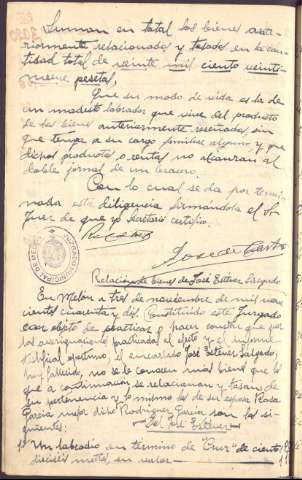 Suman en total los bienes ante-
riormente relacionados y tasados en la can-
tidad total de veinte mil ciento veinti-
nueve pesetas,
Que su modo de vida es la de
un modesto labrador que vive del producto
de los bienes anteriormente reseñados sin
que tenga a su cargo familiar alguno y que
dichos productos o rentas no alcanzan al
doble jornal de un bracero.
Con lo cual se da por termi-
nada esta diligencia firmándola el Sr
Juez de que yo Secretario certifico.
Jose de Castro
Relación de bienes de José Estevez Salgado
En Melon a tres de noviembre de mil nove-
cientos cuarenta y dos Constituido este Juzgado
con objeto de practicar y hacer constar que por
las averiguaciones practicadas al efecto y el informe
oficial oportuno, el encartado José Estevez Salgado,
hoy fallecido, no se le conocen mas bienes que los
que a continuacion se relacionan y tasan de
su pertenencia y lo mismo los de su esposa Rosa
Garcia mejor dicho Rodriguez Garcia son los si-
guientes:
De José Estevez
1º Un labradio en termino de "Cruz" de ciento
dieciseis metros, en valor